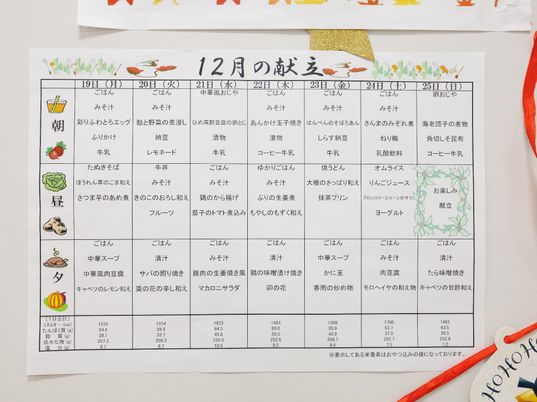 12月の献立
19日（月） 20日（火） 21日（水） 22日（木） 23日（金） 24日（土） 25日（日）
朝
ごはん ごはん 中華風おじや ごはん ごはん ごはん 卵おじや
みそ汁 みそ汁 みそ汁 みそ汁 みそ汁
彩りふわとろエッグ 麩と野菜の煮浸し ひめ高野豆腐の卵とじ あんかけ玉子焼き はんぺんのそぼろあん さんまのみぞれ煮 海老団子の煮物
ふりかけ 納豆 漬物 漬物 しらす納豆 ねり梅 角切しそ昆布
牛乳 レモネード 牛乳 コーヒー牛乳 牛乳 乳酸飲料 コーヒー牛乳
昼
たぬきそば 牛丼 ごはん ゆかりごはん 焼うどん オムライス
ほうれん草のごま和え みそ汁 みそ汁 みそ汁 大根のさっぱり和え りんごジュース お楽しみ
さつま芋のあめ煮 きのこのおろし和え 鶏のから揚げ ぶりの生姜煮 抹茶プリン ブロッコリーとコーンのサラダ 献立
フルーツ 茄子のトマト煮込み もやしのもずく和え ヨーグルト
夕
ごはん ごはん ごはん ごはん ごはん ごはん ごはん
中華スープ 清汁 みそ汁 清汁 中華スープ みそ汁 清汁
中華風肉豆腐 サバの照り焼き 豚肉の生姜焼き風 鶏の味噌漬け焼き かに玉 肉豆腐 たら味噌焼き
キャベツのレモン和え 菜の花の辛し和え マカロニサラダ 卯の花 春雨の炒め物 モロヘイヤの和え物 キャベツの甘酢和え
［1日合計］
エネルギー（kcal） 1559 1554 1625 1464 1506 1706 1465
たんぱく質（g）
脂　質（g）
炭水化物（g）
塩　分（g）
※表示してある栄養素はおやつ込みの値になっております。
HOHOHO